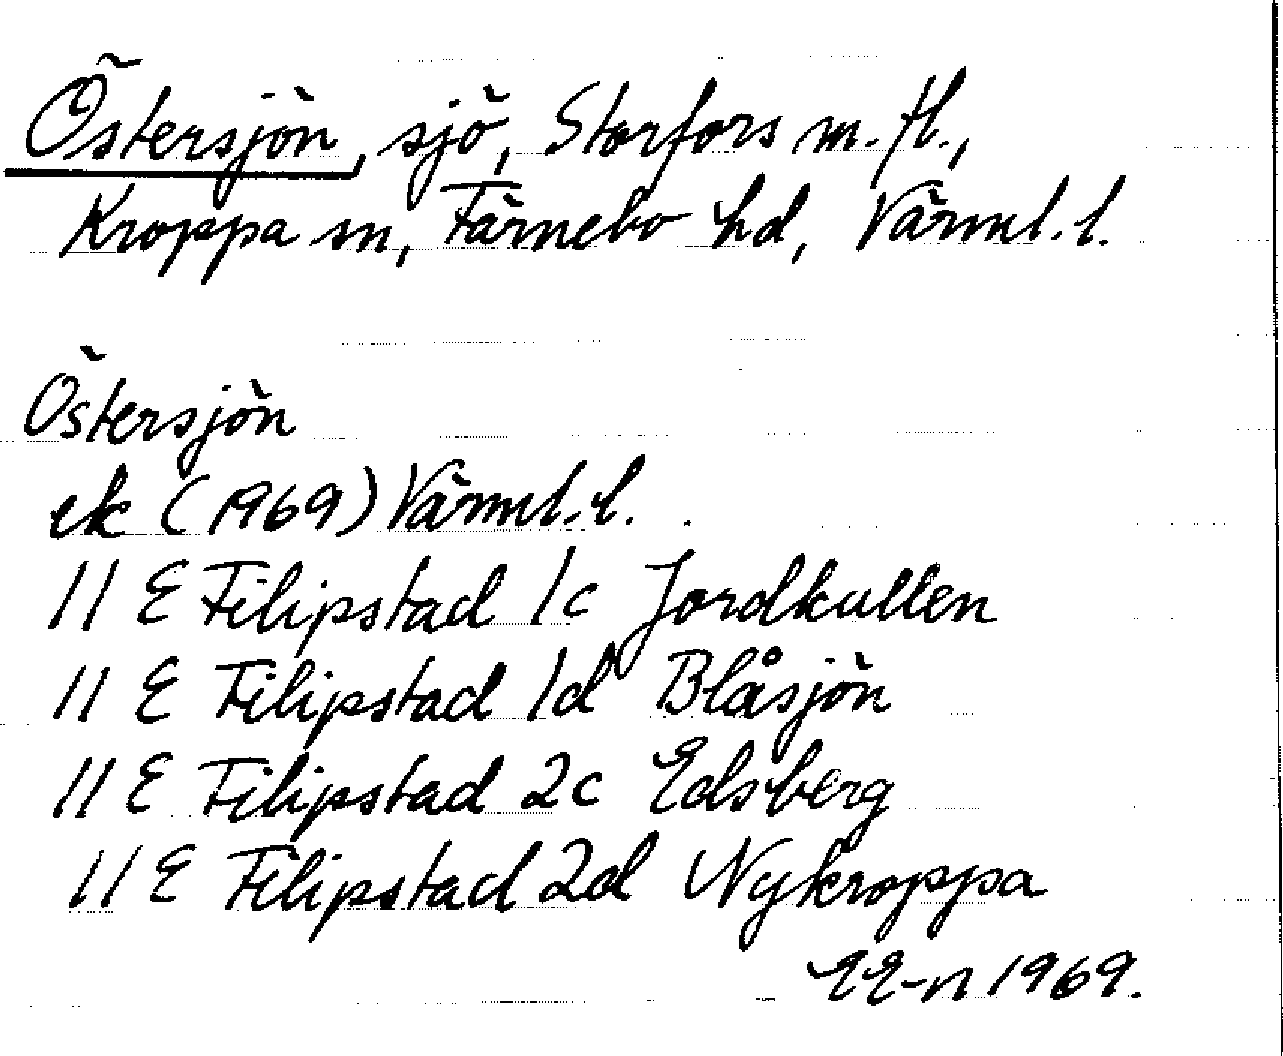 Östersjön, sjö, Storfors m.fl.,
Kroppa sn, Färnebo hd, Värml. l.
Östersjön
ek (1969) Värml. l.
11 E Filipstad 1c Jordkullen
11 E Filipstad 1d Blåsjön
11 E Filipstad 2c Edsberg
11 E Filipstad 2d Nykroppa
EE-n 1969.